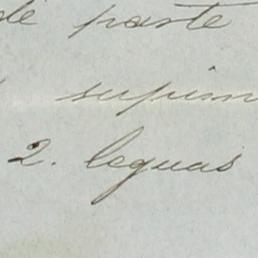 de parte
supim
2. leguas